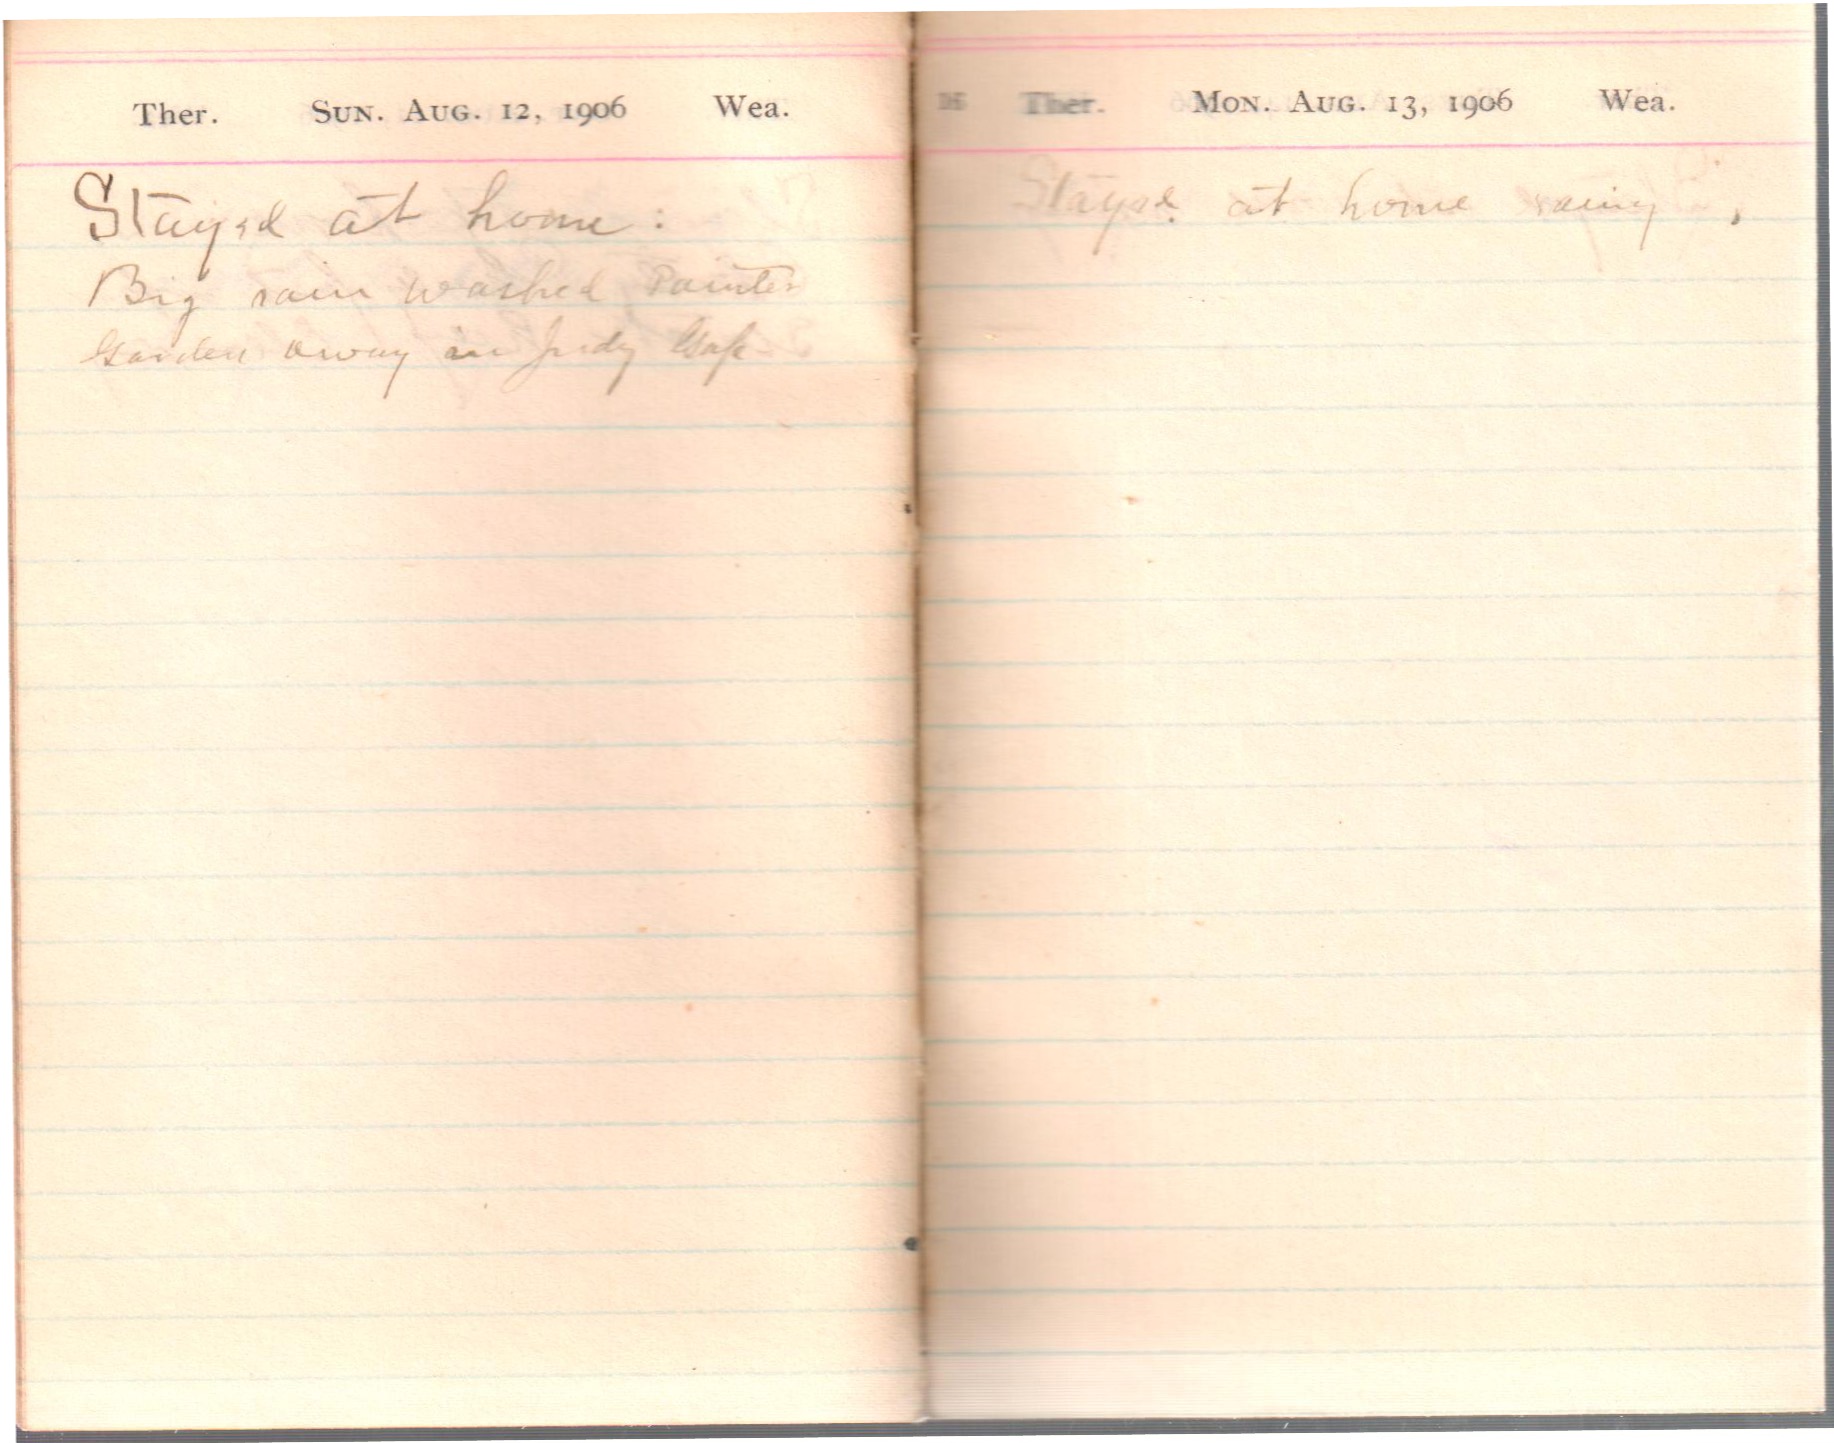 Ther. Sun. Aug. 12, 1906 Wea.
Stayed at home :
Big rain washed Painter
Garden away in Judy Gap
Ther. Mon. Aug. 13, 1906 Wea.
Stayed at home rainy ,